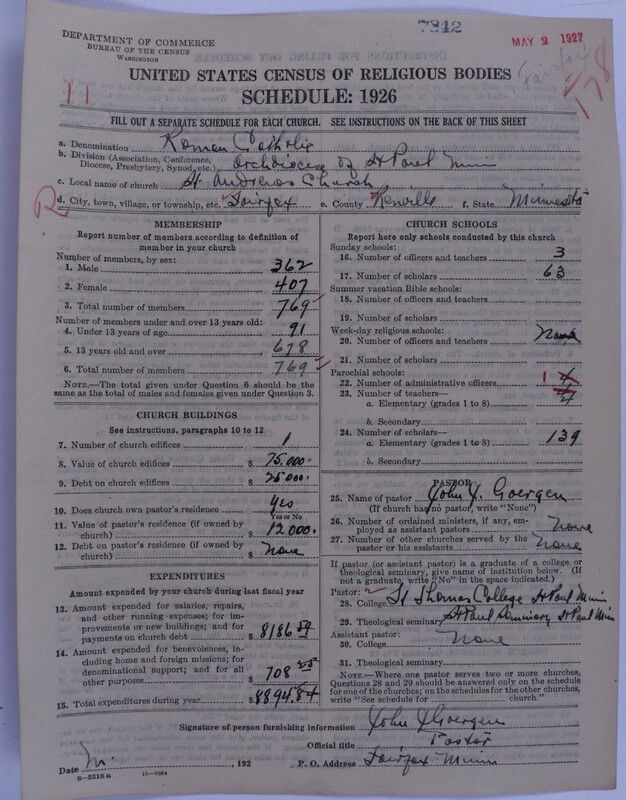 7842
DEPARTMENT OF COMMERCE
BUREAU OF THE CENSUS
WASHINGTON
MAY 2 1927
Fairfax
178
UNITED STATES CENSUS OF RELIGIOUS BODIES
11
SCHEDULE: 1926
FILL OUT A SEPARATE SCHEDULE FOR EACH CHURCH. SEE INSTRUCTIONS ON THE BACK OF THIS SHEET
a. Denomination Roman Catholic
b. Division (Association, Conference, Diocese, Presbytery, Synod, etc.) Archdiocese of St Paul Minn
c. Local name of church St Andrews Church
R
d. City, town, village, or township, etc. Fairfax e. County Renville f. State Minnesota
MEMBERSHIP
Report number of members according to definition of
member in your church
Number of members, by sex:
1. Male 362
2. Female 407
3. Total number of members 769
Number of members under and over 13 years old:
4. Under 13 years of age 91
5. 13 years old and over 678
6. Total number of members 769
NOTE.—The total given under Question 6 should be
same as the total of males and females given under Question 3.
CHURCH BUILDINGS
See instructions, paragraphs 10 to 12
7. Number of church edifices 1
8. Value of church edifices $ 75.000.
9. Debt on church edifices $ 25000.
10. Does church own pastor's residence? Yes
Yes or No
11. Value of pastor's residence (if owned by
church) $ 12000.
12. Debt on pastor's residence (if owned by
church) $ None
EXPENDITURES
Amount expended by your church during last fiscal year
13. Amount expended for salaries, repairs,
and other running expenses; for im-
provements or new buildings; and for
payments on church debt $ 8186
14. Amount expended for benevolences, in-
cluding home and foreign missions; for
denominational support; and for all
other purposes $ 708
15. Total expenditures during year $ 8894.84
CHURCH SCHOOLS
Report here only schools conducted by this church
Sunday schools:
16. Number of officers and teachers 3
17. Number of scholars 63
Summer vacation Bible schools:
18. Number of officers and teachers
19. Number of scholars
Week-day religious schools:
20. Number of officers and teachers None
21. Number of scholars
Parochial schools:
22. Number of administrative officers 1 4
23. Number of teachers—
a. Elementary (grades 1 to 8) 4
b. Secondary
24. Number of scholars—
a. Elementary (grades 1 to 8) 139
b. Secondary
PASTOR
25. Name of pastor John J. Goergen
(If church has no pastor, write "None")
26. Number of ordained ministers, if any, em-
ployed as assistant pastors None
27. Number of other churches served by the
pastor or his assistants None
If pastor (or assistant pastor) is a graduate of a college or
theological seminary, give name of institution below. (If
not a graduate, write "No" in the space indicated.)
Pastor:
28. College St Thomas College St Paul Minn
29. Theological seminary St Paul Seminary St Paul Minn
Assistant pastor:
30. College None
31. Theological seminary
NOTE.—Where one pastor serves two or more churches,
Questions 28 and 29 should be answered only on the schedule
for one of the churches; on the schedules for the other churches,
write "See schedule for church."
Signature of person furnishing information John J Goergen
Official title Pastor
Date , 192 P. O. Address Fairfax Minn
8-5518a 11-9064